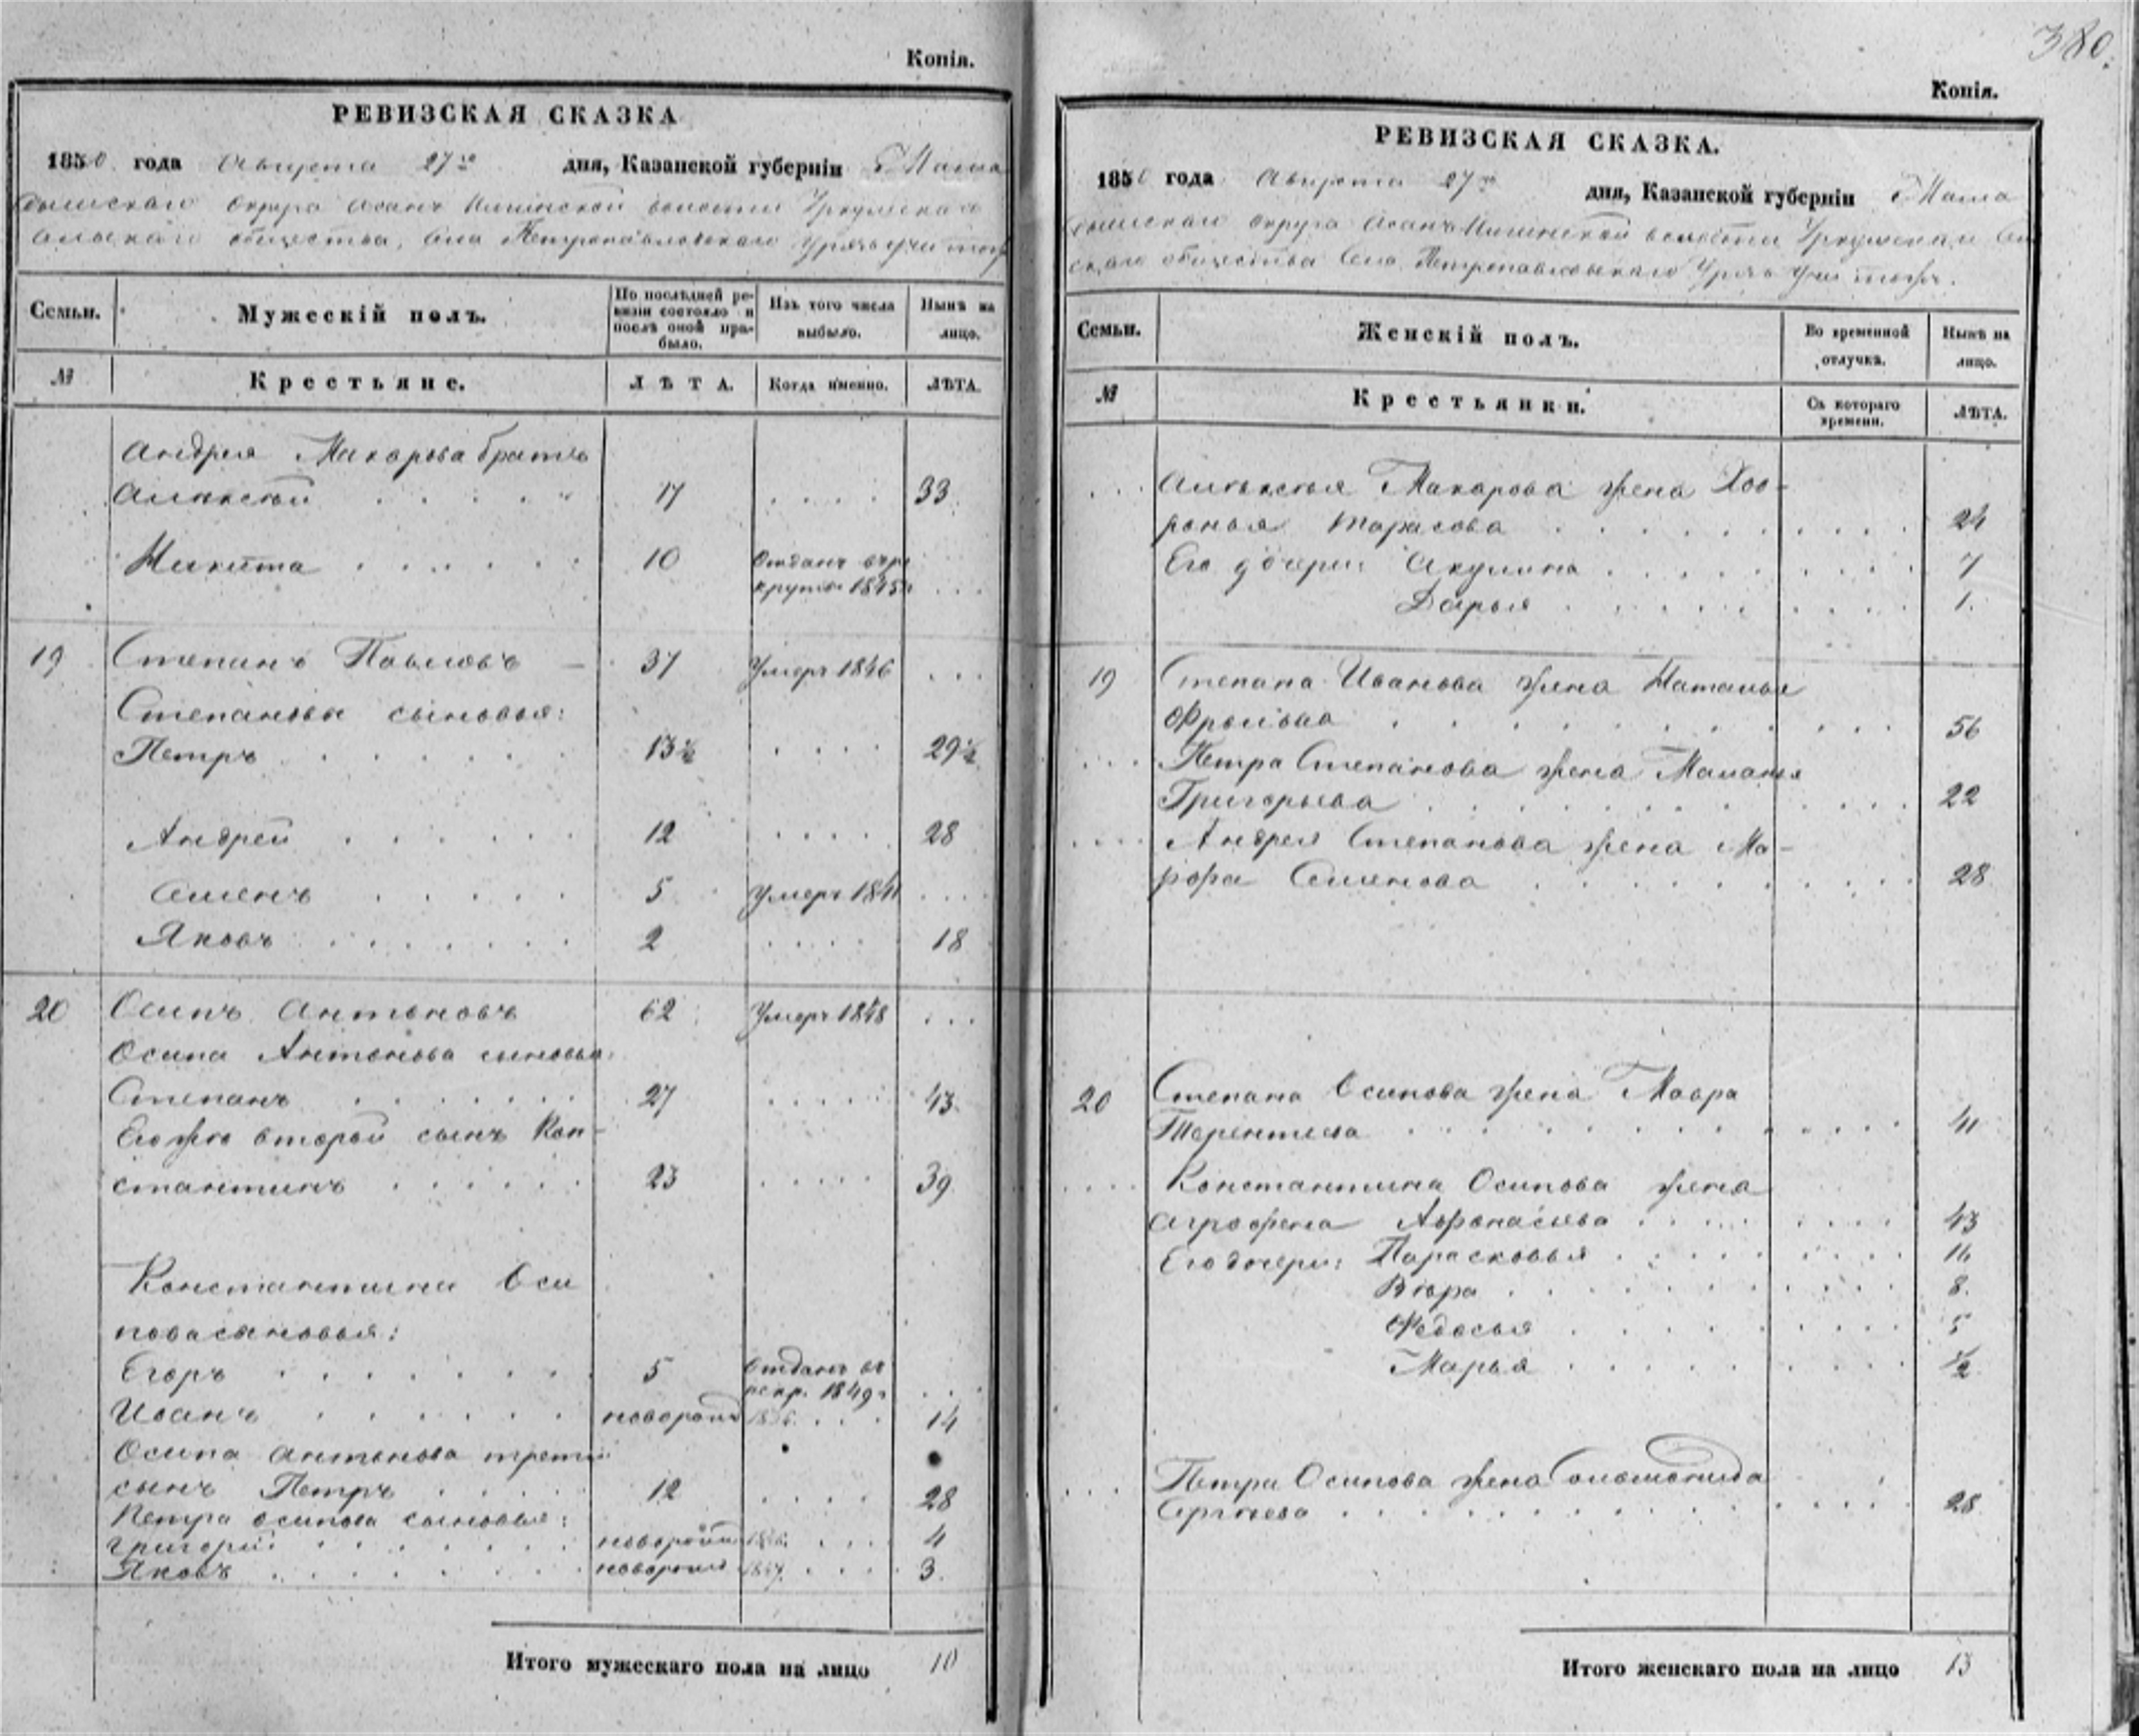 Копія.
РЕВИЗСКАЯ СКАЗКА
1850 года Августа 27го дня, Казанской губерніи Мама
дышскаго округа волости
общества, Села Петропавловскаго
Семьи. Мужескій полъ. По послѣдней ревизіи состояло и послѣ оной прибыло. Изъ того числа выбыло. Нынѣ на лицо.
№ Крестьяне. ЛѢТА. Когда именно. ЛѢТА.
Андрея Макарова братья
Алексѣй 17 33
Никита 10 Отданъ въ ре
круты 1845
19 Степанъ Павловъ 37 Умеръ 1846
Степановы сыновья:
Петръ 13½ 29½
Андрей 12 28
Семенъ 5 Умеръ 1841
Яковъ 2 18
20 Осипъ Антоновъ 62 Умеръ 1848
Осипа Антонова сыновья:
Степанъ 27 43
Егожъ второй сынъ Кон-
стантинъ 23 39
Константина Оси
пова сыновья:
Егоръ 5 Отданъ въ
рекр. 1849г
Иванъ новорожд 1836 14
Осипа Антонова третій
сынъ Петръ 12 28
Петра Осипова сыновья:
Григорій новорожд 1846 4
Яковъ новорожд 1847 3
Итого мужескаго пола на лицо 10
380.
Копія.
РЕВИЗСКАЯ СКАЗКА.
1850 года Августа 27го дня, Казанской губерніи Мама
дышскаго округа волости
скаго общества Села Петропавловскаго
Семьи. Женскій полъ. Во временной отлучкѣ. Нынѣ на лицо.
№ Крестьянки. Съ котораго времени. ЛѢТА.
Алексѣя Макарова жена
Тарасова 24
Его дочери: Акулина 7
Дарья 1.
19 Степана Иванова жена Наталья
Фролова 56
Петра Степанова жена Маланья
Григорьева 22
Андрея Степанова жена Ма-
Семенова 28
20 Степана Осипова жена Мавра
Терентьева 41
Константина Осипова жена
Агрофена Афонасьева 43
Его дочери: Парасковья 16
Вѣра 8.
Федосья 5
Марья ½
Петра Осипова жена
Сергѣева 28
Итого женскаго пола на лицо 13